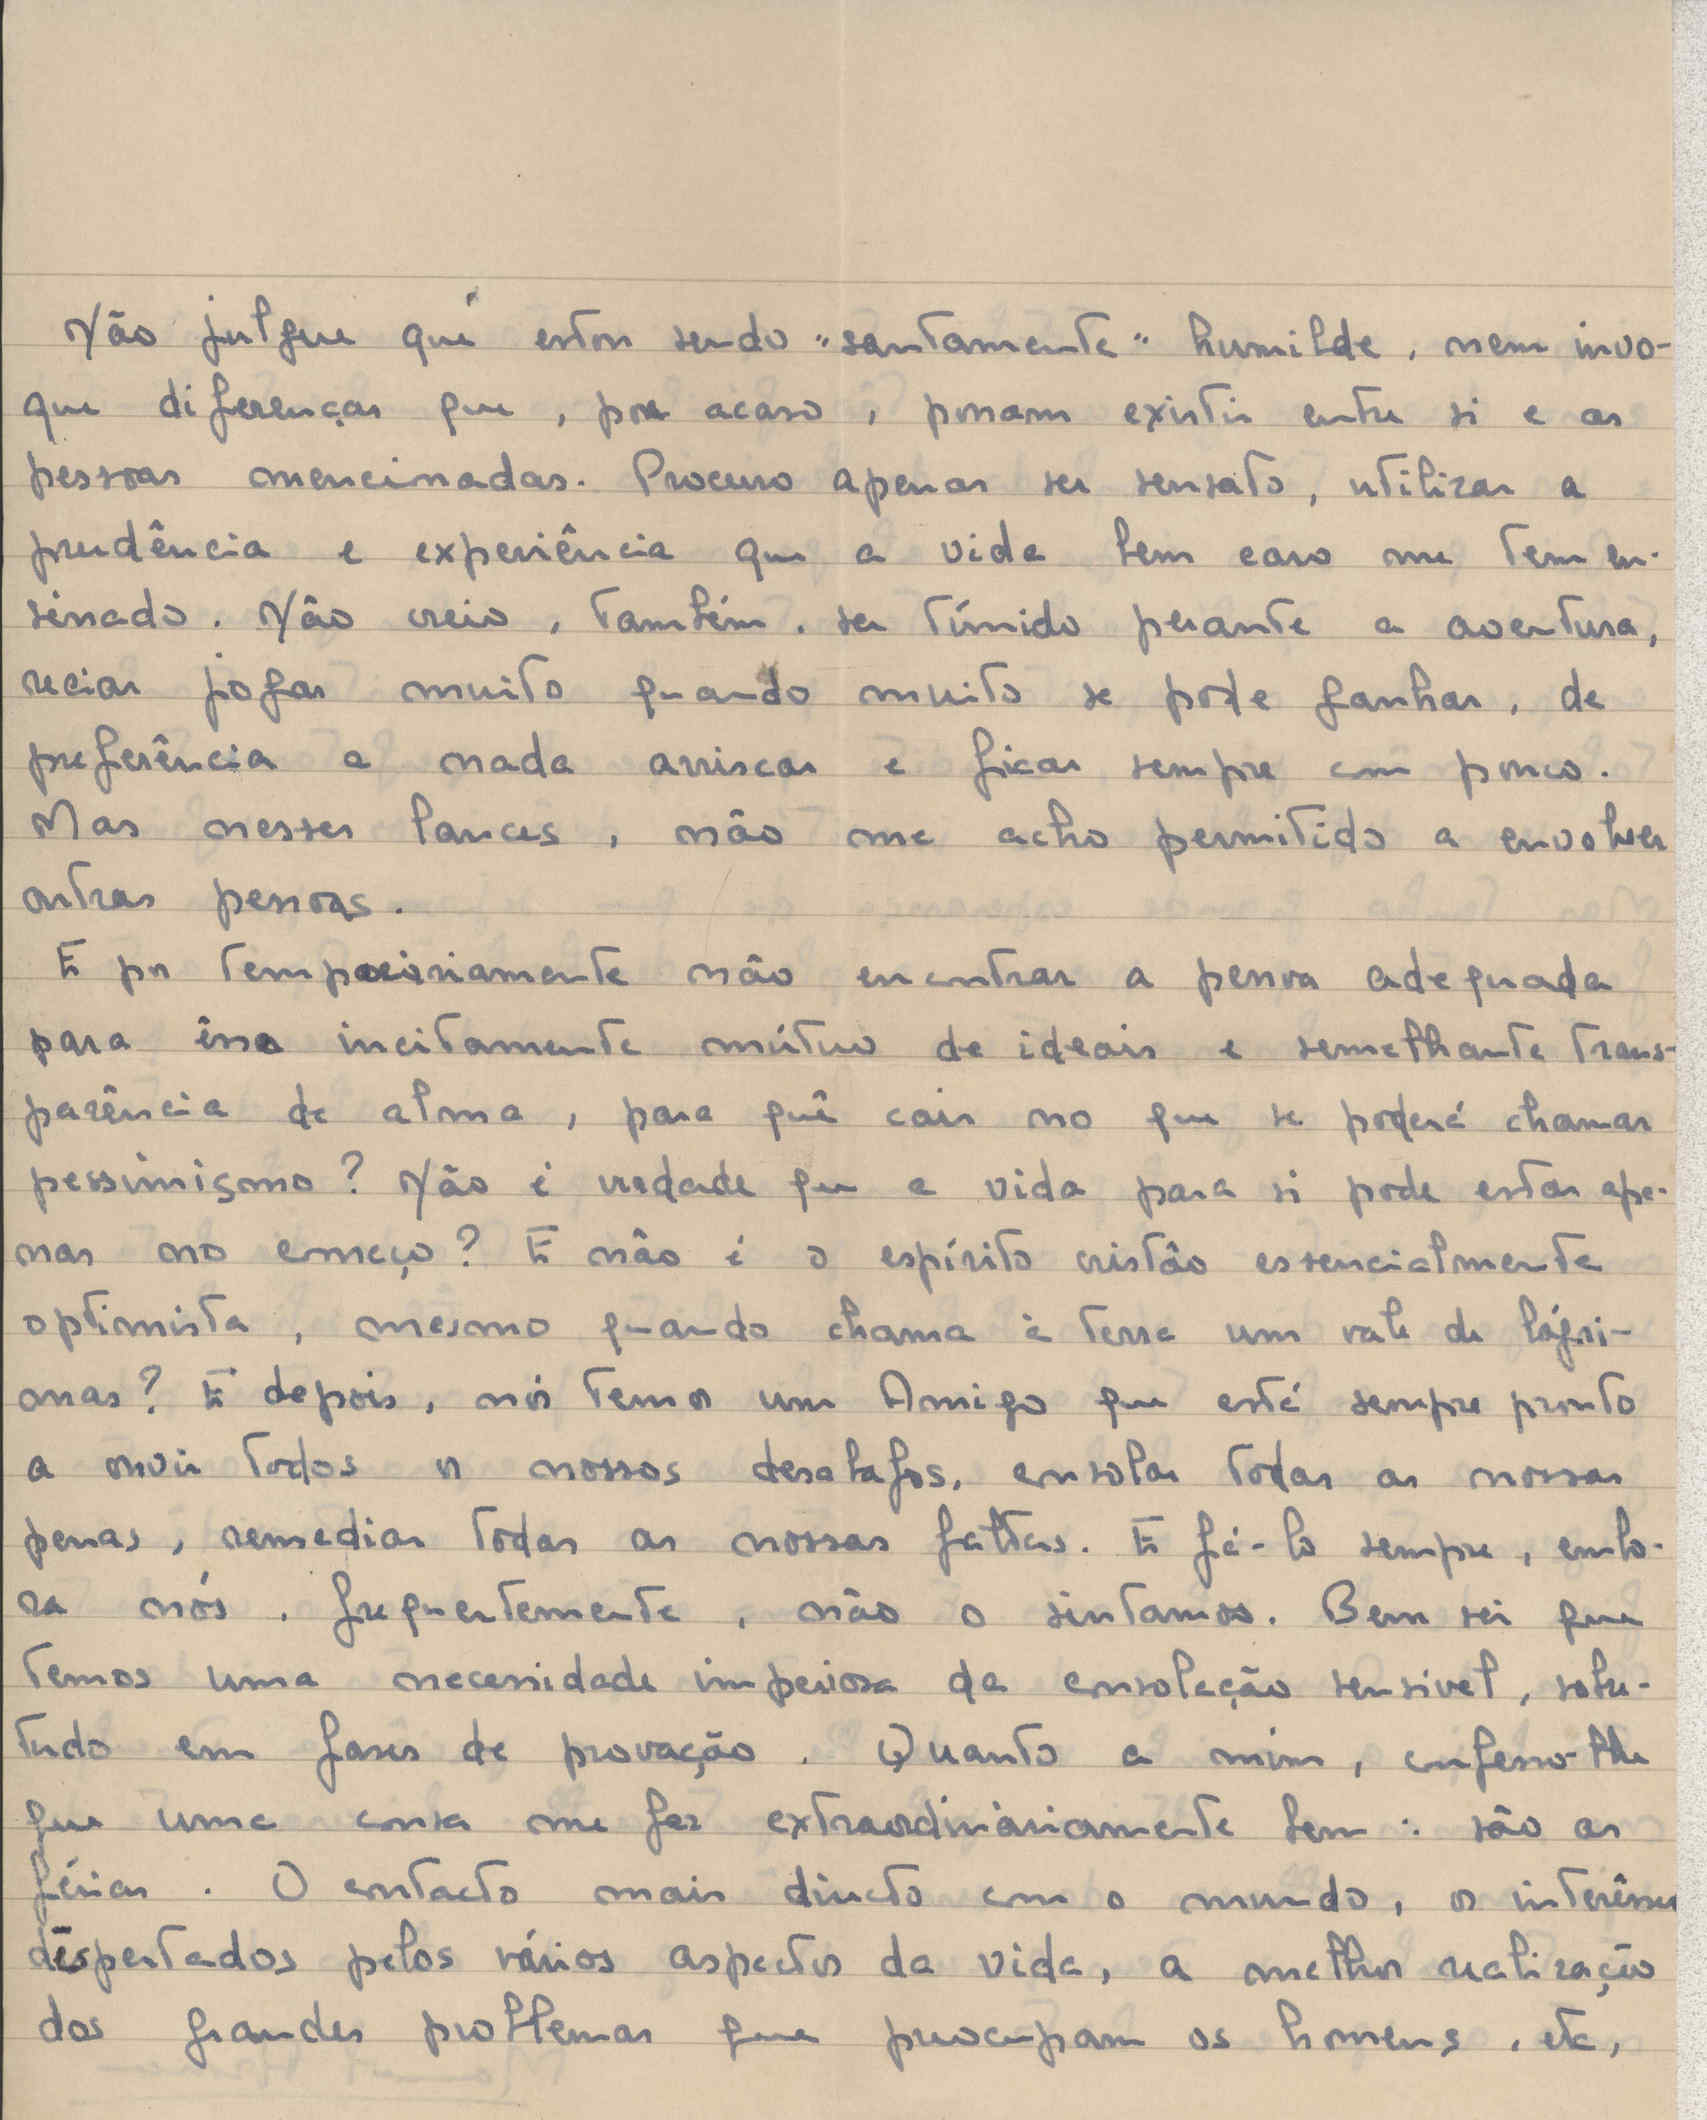 Não julgue que estou sendo "santamente" humilde, nem invo-
que diferenças que, por acaso, possam existir entre si e as
pessoas mencinadas. Procuro apenas ser sensato, utilizar a
prudência e experiência que a vida bem caro me tem en-
sinado. Não creio, também, ser tímido perante a aventura,
recear jogar muito quando muito se pode ganhar, de
preferência a nada arriscar e ficar sempre com pouco.
Mas nesses lances, não me acho permitido a envolver
outras pessoas.
E por temporariamente não encontrar a pessoa adequada
para êsse incitamento mútuo de ideais e semelhante trans-
parência de alma, para quê cair no que se poderá chamar
pessimismo? Não é verdade que a vida para si pode estar ape-
nas no começo? E não é o espírito cristão essencialmente
optimista, mesmo quando chama à terra um vale de lágri-
mas? E depois, nós temos um Amigo que está sempre pronto
a ouvir todos os nossos desabafos, consolar todas as nossas
penas, remediar todas as nossas faltas. E fá-lo sempre, embo-
ra nós, frequentemente, não o sintamos. Bem sei que
temos uma necessidade imperiosa da consolação sensivel, sobre-
tudo em fases de provação. Quanto a mim, confesso-lhe
que uma coisa me faz extraordinàriamente bem: são as
férias. O contacto mais directo com o mundo, os interêsses
despertados pelos vários aspectos da vida, a melhor realização
dos grandes problemas que preocupam os homens, etc,